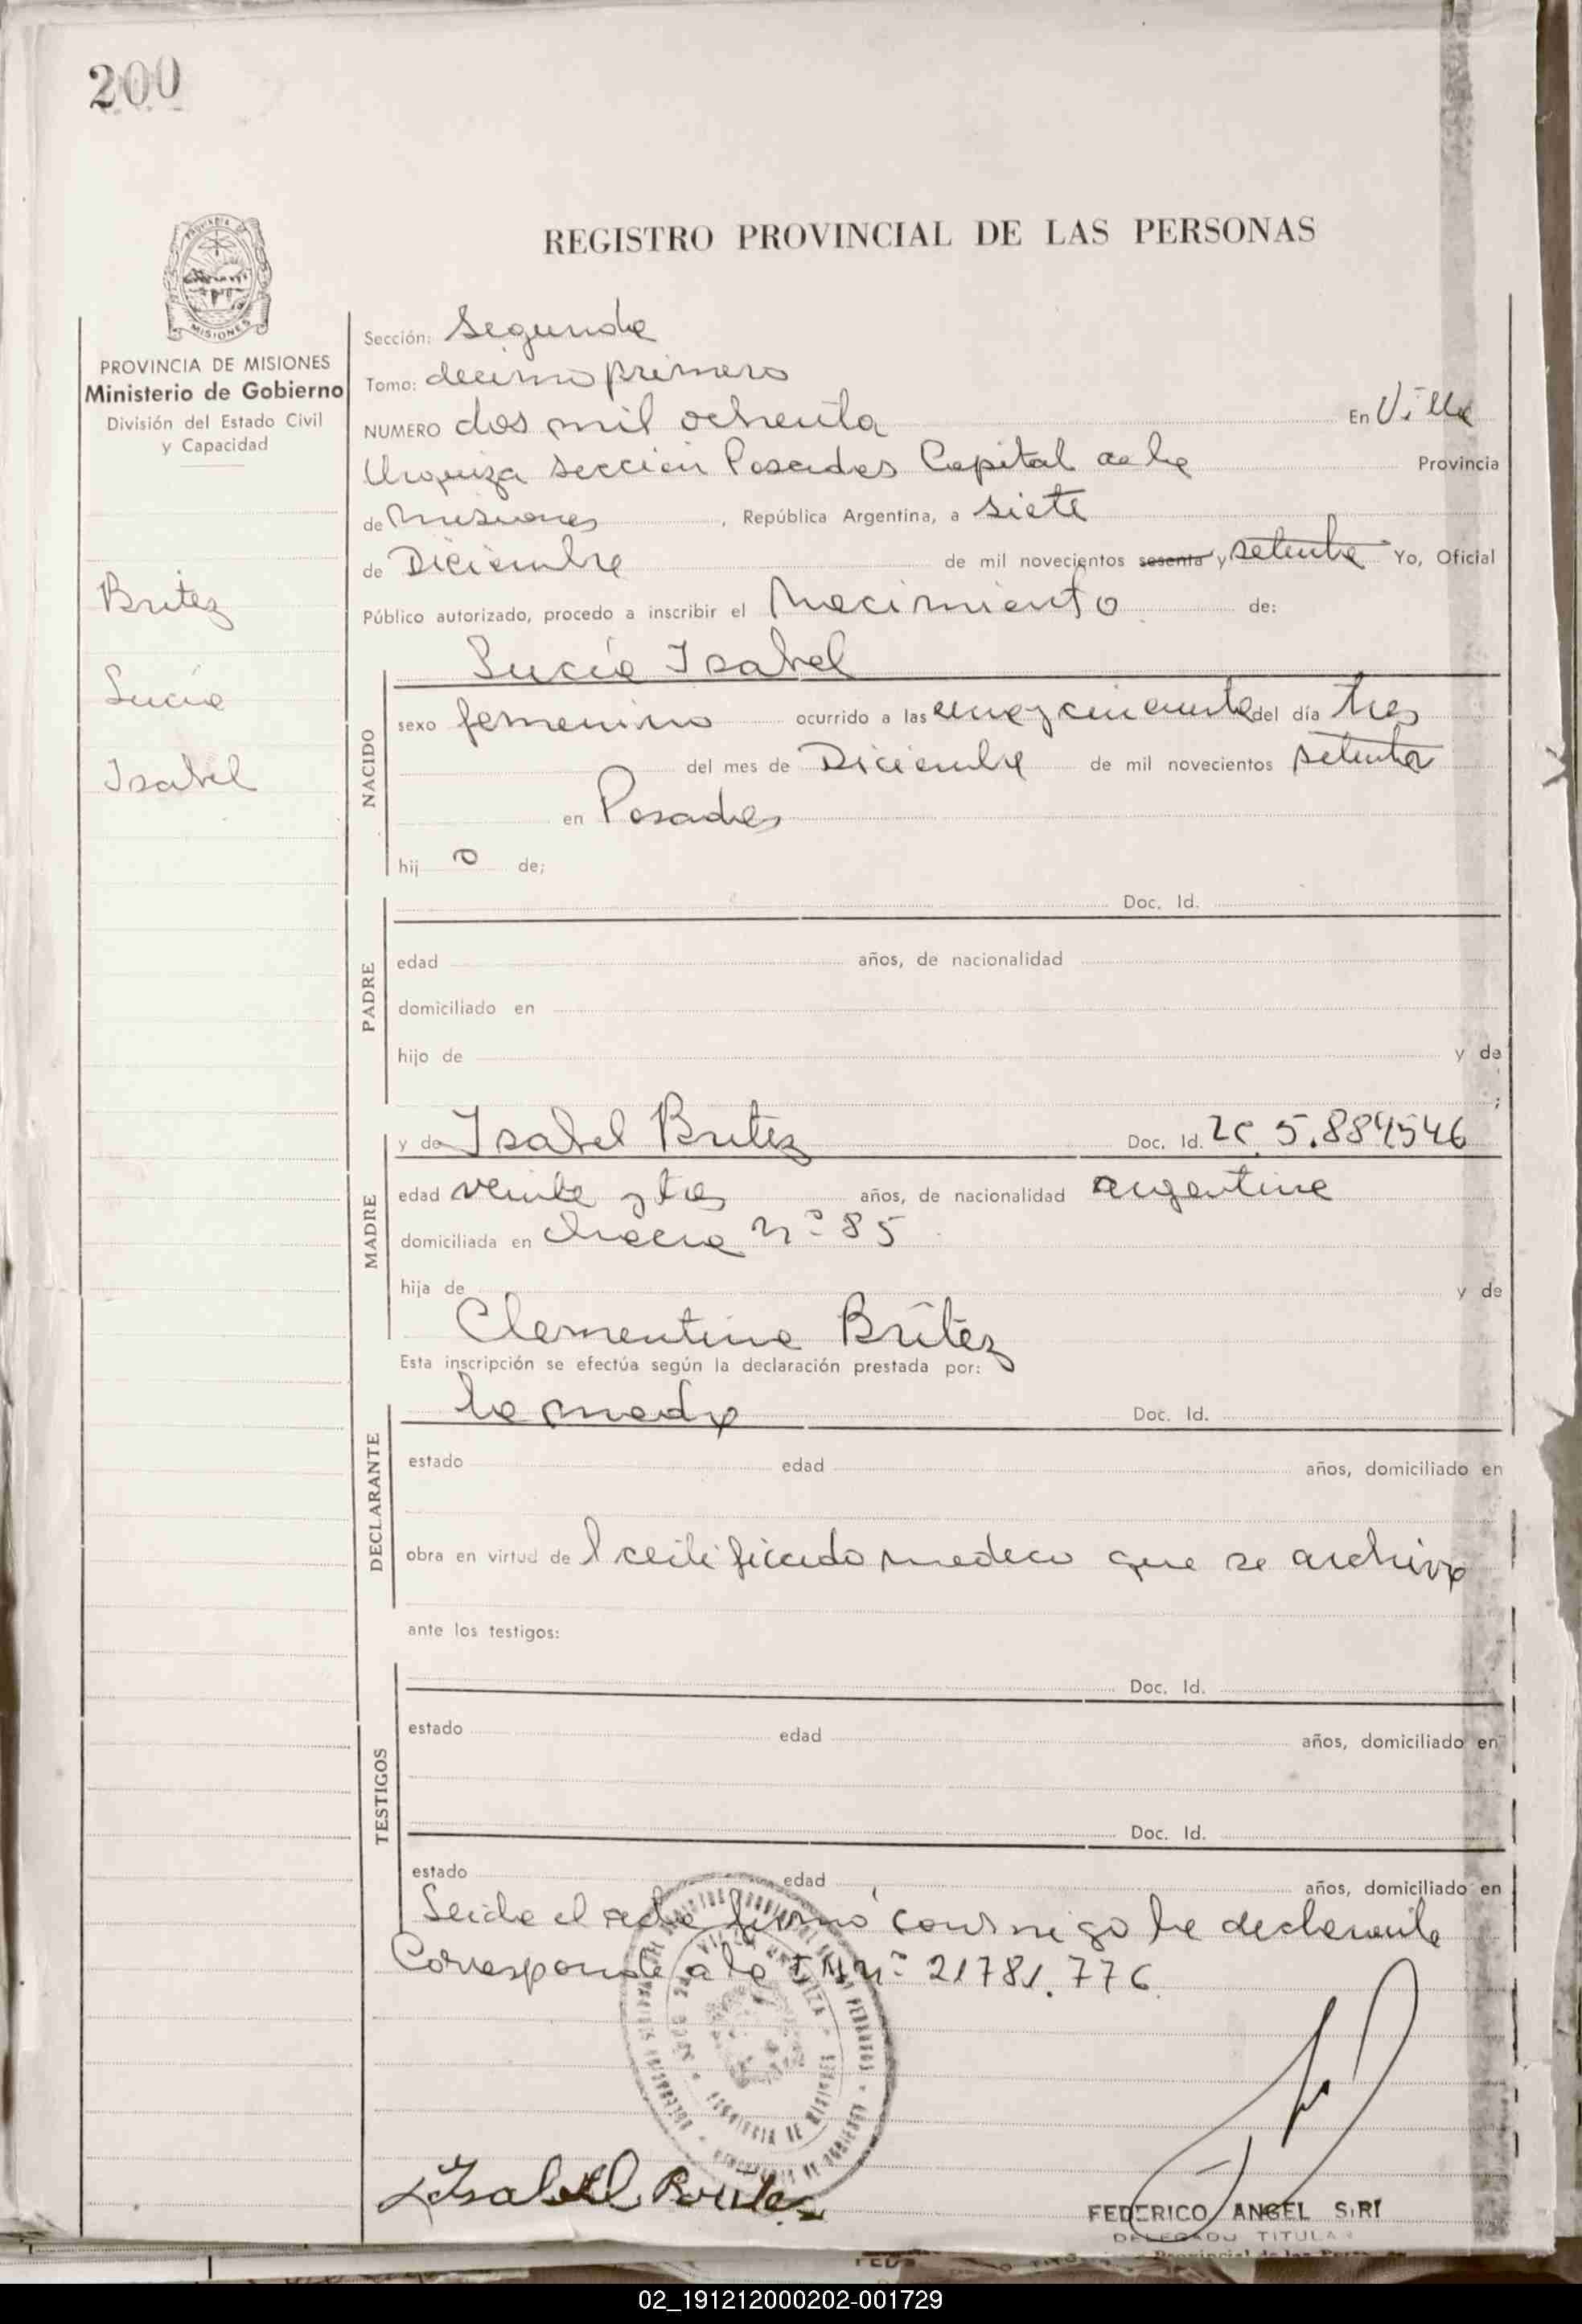 200
REGISTRO PROVINCIAL DE LAS PERSONAS
MISIONES
PROVINCIA DE MISIONES
Ministerio de Gobierno
División del Estado Civil
y Capacidad
Britez
Lucía
Isabel
Sección: Segunda
Tomo: decimo primero
NUMERO dos mil ochenta En Villa
Urquiza sección Posadas Capital de la Provincia
de Misiones, República Argentina, a siete
de Diciembre de mil novecientos sesenta y setenta Yo, Oficial
Público autorizado, procedo a inscribir el Nacimiento de:
Lucía Isabel
NACIDO
sexo femenino ocurrido a las cincuenta del día tres
del mes de Diciembre de mil novecientos setenta
en Posadas
hij a de;
PADRE
Doc. Id.
edad años, de nacionalidad
domiciliado en
hijo de y de
;
MADRE
y de Isabel Britez Doc. Id. LC 5.884546
edad veinte y tres años, de nacionalidad argentina
domiciliada en chacra nº 85
hija de y de
Clementina Britez
Esta inscripción se efectúa según la declaración prestada por:
DECLARANTE
la madre Doc. Id.
estado edad años, domiciliado en
obra en virtud de l certificado medico que se archiva
ante los testigos:
TESTIGOS
Doc. Id.
estado edad años, domiciliado en
Doc. Id.
estado edad años, domiciliado en
Leida el acta firmó conmigo la declarante
Corresponde a la nº 21781.776
PROVINCIA DE MISIONES
Isabel Britez
FEDERICO ANGEL SIRI
DELEGADO TITULAR
02_191212000202-001729